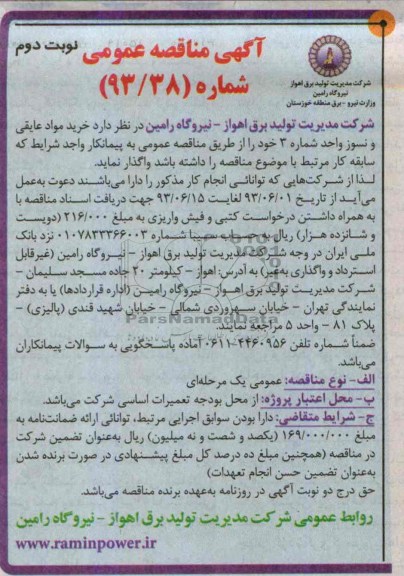 آگهی مناقصه عمومی
نوبت دوم
شماره (۹۳/۳۸)
شرکت مدیریت تولید برق اهواز
نیروگاه رامین
وزارت نیرو - برق منطقه خوزستان
شرکت مدیریت تولید برق اهواز - نیروگاه رامین در نظر دارد خرید مواد عایقی
و نسوز واحد شماره ۳ خود را از طریق مناقصه عمومی به پیمانکار واجد شرایط که
سابقه کار مرتبط با موضوع مناقصه را داشته باشد واگذار نماید.
لـذا از شـرکت‌هایی که توانائـی انجام کار مذکور را دارا می‌باشـند دعوت به‌عمل
می‌آیـد از تاریخ ۹۳/۰۶/۰۱ لغایـت ۹۳/۰۶/۱۵ جهت دریافت اسـناد مناقصه با
به همراه داشـتن درخواسـت کتبی و فیش واریزی به مبلغ ۲۱۶/۰۰۰ (دویست
و شـانزده هـزار) ریال به حسـاب سـیبا شـماره ۰۱۰۷۸۳۳۳۶۶۰۰۳ نزد بانک
ملی ایران در وجه شـرکت مدیریت تولید برق اهواز - نیـروگاه رامین (غیرقابل
استرداد و واگذاری به‌غیر) به آدرس: اهواز - کیلومتر ۲۰ جاده مسجد سلیمان -
شـرکت مدیریـت تولیـد برق اهـواز - نیـروگاه رامیـن (اداره قراردادها) یا به دفتر
نمایندگی تهران - خیابان سـهروردی شمالی - خیابان شهید قندی (پالیزی) -
پلاک ۸۱ - واحد ۵ مراجعه نمایند.
ParsNamadData
ضمناً شـماره تلفن ۴۴۶۰۹۵۶-۰۶۱۱ آماده پاسـخگویی به سـوالات پیمانکاران
می‌باشد.
الف- نوع مناقصه: عمومی یک مرحله‌ای
ب- محل اعتبار پروژه: از محل بودجه تعمیرات اساسی شرکت می‌باشد.
ج- شرایط متقاضی: دارا بودن سوابق اجرایی مرتبط، توانائی ارائه ضمانت‌نامه به
مبلغ ۱۶۹/۰۰۰/۰۰۰ (یکصد و شصت و نه میلیون) ریال به‌عنوان تضمین شرکت
در مناقصه (همچنین مبلغ ده درصد کل مبلغ پیشـنهادی در صورت برنده شدن
به‌عنوان تضمین حسن انجام تعهدات)
حق درج دو نوبت آگهی در روزنامه به‌عهده برنده مناقصه می‌باشد.
روابط عمومی شرکت مدیریت تولید برق اهواز - نیروگاه رامین
www.raminpower.ir